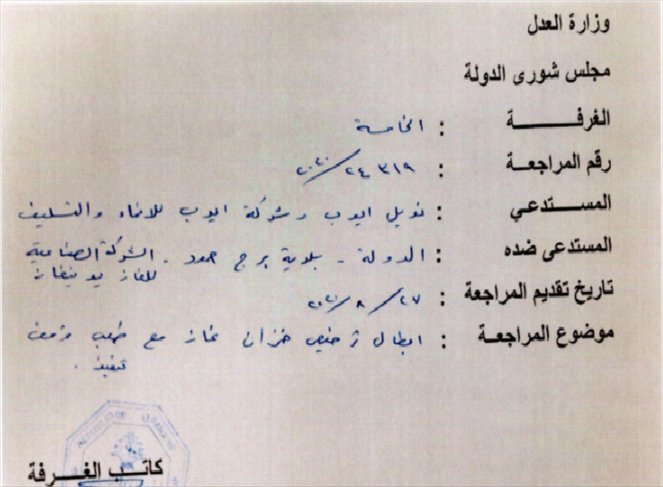 وزارة العدل
مجلس شورى الدولة
الغرفة : الخامسة
رقم المراجعة : ٢٤٣١٩/٢٠٢٠
المستدعي : نوبل ايوب وشركة ايوب للانماء والتسليف
المستدعى ضده : الدولة - بلدية برج حمود - الشركة الصناعية
للغاز
تاريخ تقديم المراجعة : ٢٧/٨/٢٠٢٠
موضوع المراجعة : ابطال ترخيص خزان غاز مع طلب وقف
تنفيذ .
REPUBLIQUE LIBANAISE
كاتب الغرفة